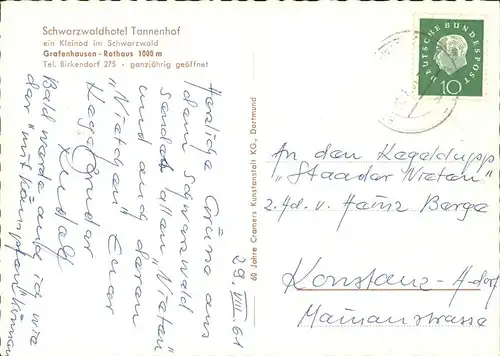 Schwarzwaldhotel Tannenhof
ein Kleinod im Schwarzwald
Grafenhausen - Rothaus 1000 m
Tel. Birkendorf 275 - ganzjährig geöffnet
DEUTSCHE BUNDESPOST
10
29. VIII. 61
Herzliche Grüsse aus
dem Schwarzwald
sendet allen "Nieten"
und auch deren
"Nietchen" Euer
Kegelbruder
Bald werde auch ich wie
der "mitkämpfen" können
60 Jahre Cramers Kunstanstalt KG., Dortmund
An den Kegelclub
"Staader Nieten"
z.Hd. v. Heinz Berge
Konstanz-A-dorf
Mainaustrasse